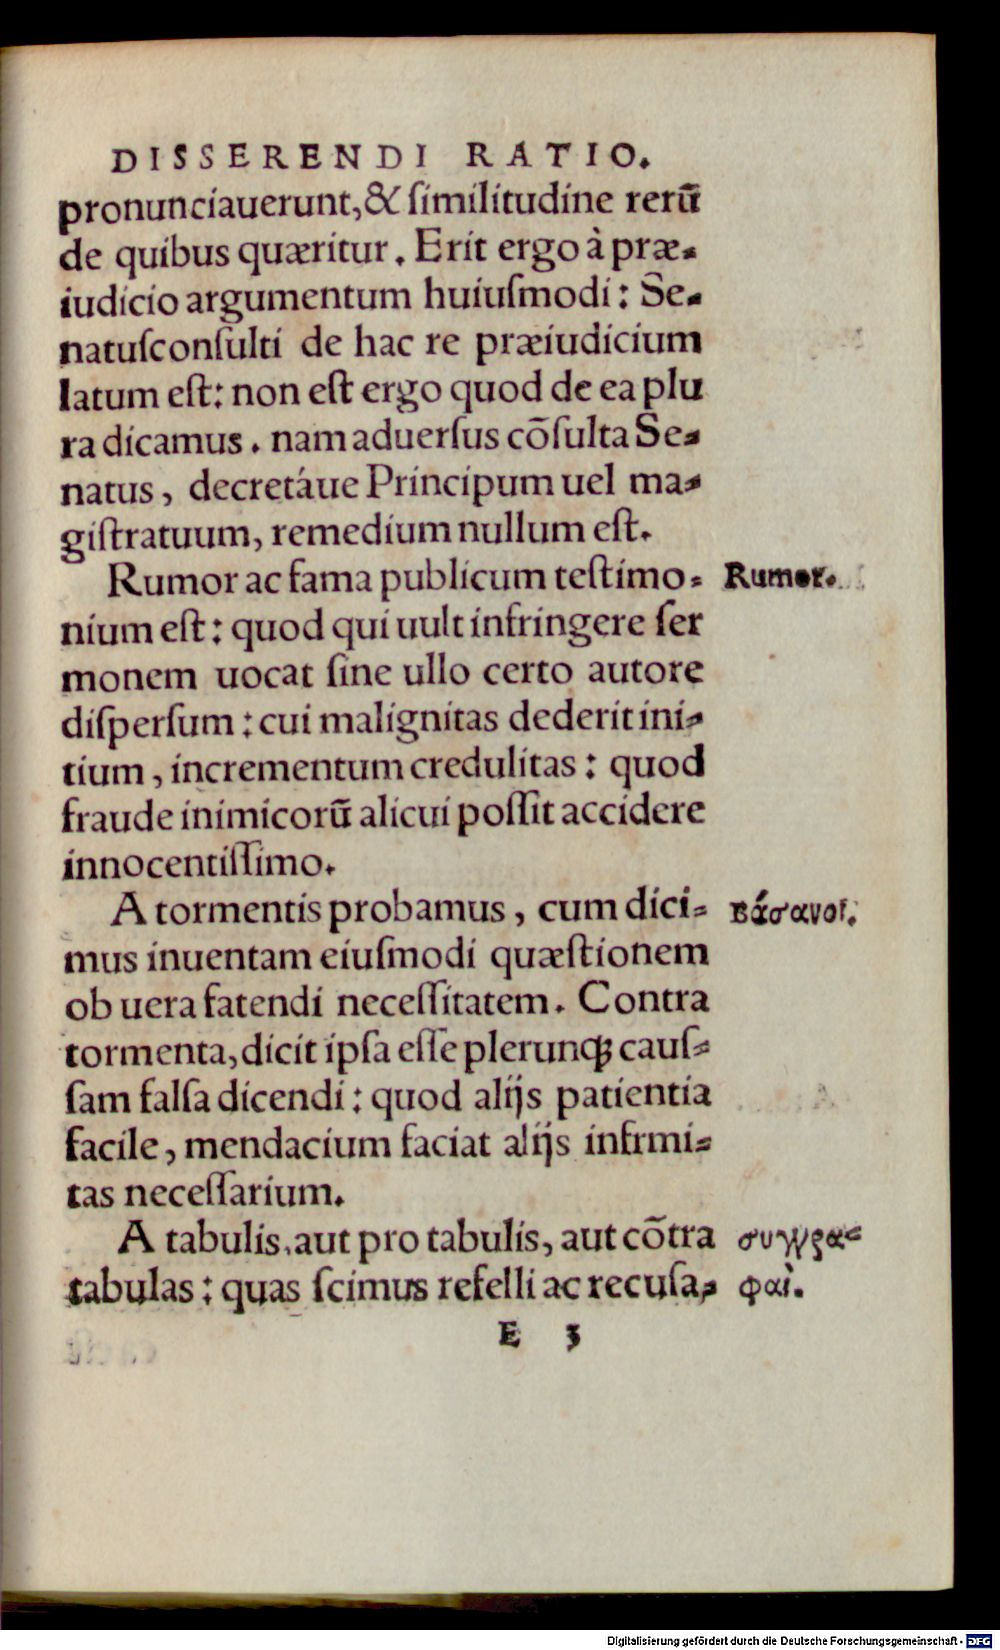 DISSERENDI RATIO.
pronunciauerunt,& ſimilitudine rerũ
de quibus quæritur. Erit ergo à præ-
iudicio argumentum huiuſmodi: Se-
natuſconſulti de hac re præiudicium
latum eſt: non eſt ergo quod de ea plu
ra dicamus. nam aduerſus cõſulta Se-
natus, decretáue Principum uel ma-
giſtratuum, remedium nullum eſt.
Rumor ac fama publicum teſtimo- Rumor.
nium eſt: quod qui uult infringere ſer
monem uocat ſine ullo certo autore
diſperſum: cui malignitas dederit ini-
tium, incrementum credulitas: quod
fraude inimicorũ alicui poſſit accidere
innocentiſſimo.
A tormentis probamus, cum dici- βάσανοι.
mus inuentam eiuſmodi quæſtionem
ob uera fatendi neceſſitatem. Contra
tormenta, dicit ipſa eſſe plerunqꝫ cauſ-
ſam falſa dicendi: quod alijs patientia
facile, mendacium faciat alijs infrmi-
tas neceſſarium.
A tabulis, aut pro tabulis, aut cõtra συγγρα-
tabulas: quas ſcimus refelli ac recuſa- φαὶ.
E 3
Digitalisierung gefördert durch die Deutsche Forschungsgemeinschaft - DFG